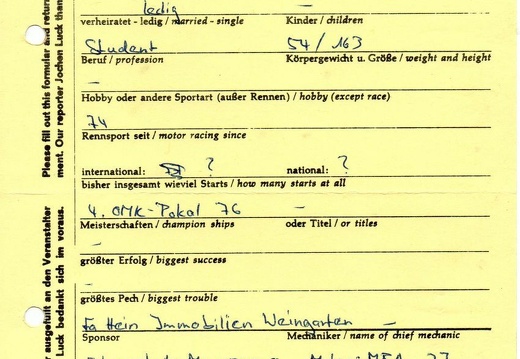 ledig –
verheiratet - ledig / married - single Kinder / children
Student 54 / 163
Beruf / profession Körpergewicht u. Größe / weight and height
–
Hobby oder andere Sportart (außer Rennen) / hobby (except race)
74
Rennsport seit / motor racing since
international: ? national: ?
bisher insgesamt wieviel Starts / how many starts at all
4. OMK-Pokal 76 –
Meisterschaften / champion ships oder Titel / or titles
–
größter Erfolg / biggest success
–
größtes Pech / biggest trouble
Fa Hein Immobilien Weingarten –
Sponsor Mechaniker / name of chief mechanic
Please fill out this formular and return
ment. Our reporter Jochen Luck than
ausgefüllt an den Veranstalter
Luck bedankt sich im voraus.